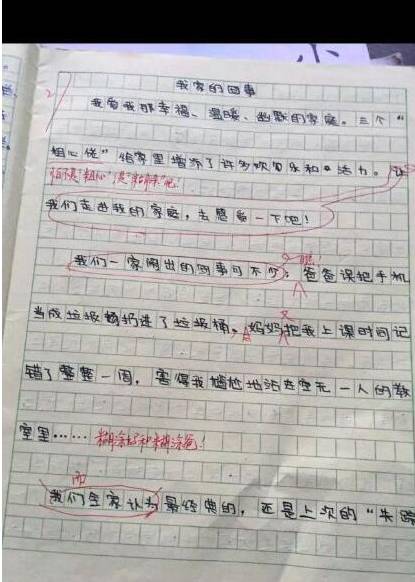 我家的囧事
我爱我那幸福、温暖、幽默的家庭。三个“
粗心佬”给家里增添了许多欢乐和活力。让
怕不是“粗心”是“糊涂”吧!
我们走进我的家庭，去感受一下吧!
我们一家闹出的囧事可不少: 瞧! 爸爸误把手机
当成垃圾扔进了垃圾桶, 妈妈又把我上课时间记
错了整整一周，害得我尴尬地站在空无一人的教
室里…… 糊涂妈和糊涂爸!
而
我们全家认为最经典的，还是上次的“失踪